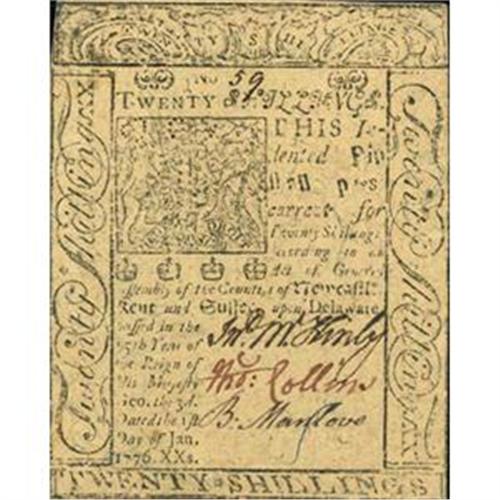 TWENTY SHILLINGS
No 59
TWENTY SHILLINGS.
THIS In-
dented Bill
shall pass
current for
Twenty Shillings
according to an
Act of General
Assembly of the Counties of Newcastle
Kent and Sussex upon Delaware
passed in the
15th Year of
the Reign of
His Majesty
Geo. the 3d.
Dated the 1st
Day of Jan.
1776. XXs.
Jno. McKinly
Thos: Collins
B. Manlove
Twenty Shilling XX
Twenty Shilling XX
TWENTY SHILLINGS